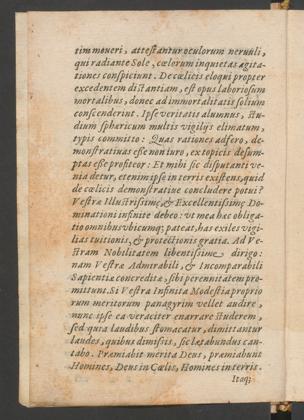 tim moueri, attestantur oculorum neruuli,
qui radiante Sole, cœlorum inquietas agita-
tiones conspiciunt. De cœlicis eloqui propter
excedentem distantiam, est opus laboriosum
mortalibus, donec ad immortalitatis solium
conscenderint. Ipse veritatis alumnus, stu-
dium sphæricum multis vigilijs elimatum,
typis committo: Quas rationes adfero, de-
monstratiuas esse non iuro, ex topicis desum-
ptas esse profiteor: Et mihi sic disputanti ve-
nia detur, etenim ipse in terris existens, quid
de cœlicis demonstratiue concludere potui?
Vestræ Illustrissimæ, & Excellentissimæ Do-
minationi infinite debeo: vt mea hæc obliga-
tio omnibus vbicumq; pateat, has exiles vigi-
lias tuitionis, & protectionis gratia. Ad Ve-
stram Nobilitatem libentissime dirigo:
nam Vestræ Admirabili, & Incomparabili
Sapientiæ concreditæ, sibi perennitatem pro-
mittunt. Si Vestra Infinita Modestia proprio
rum meritorum panagirim vellet audire,
nunc ipse ea veraciter enarrare studerem,
sed quia laudibus stomacatur, dimittantur
laudes, quibus dimissis, sic lætabundus can-
tabo. Præmiabit merita Deus, præmiabunt
Homines, Deus in Cœlis, Homines in terris.
Itaq;